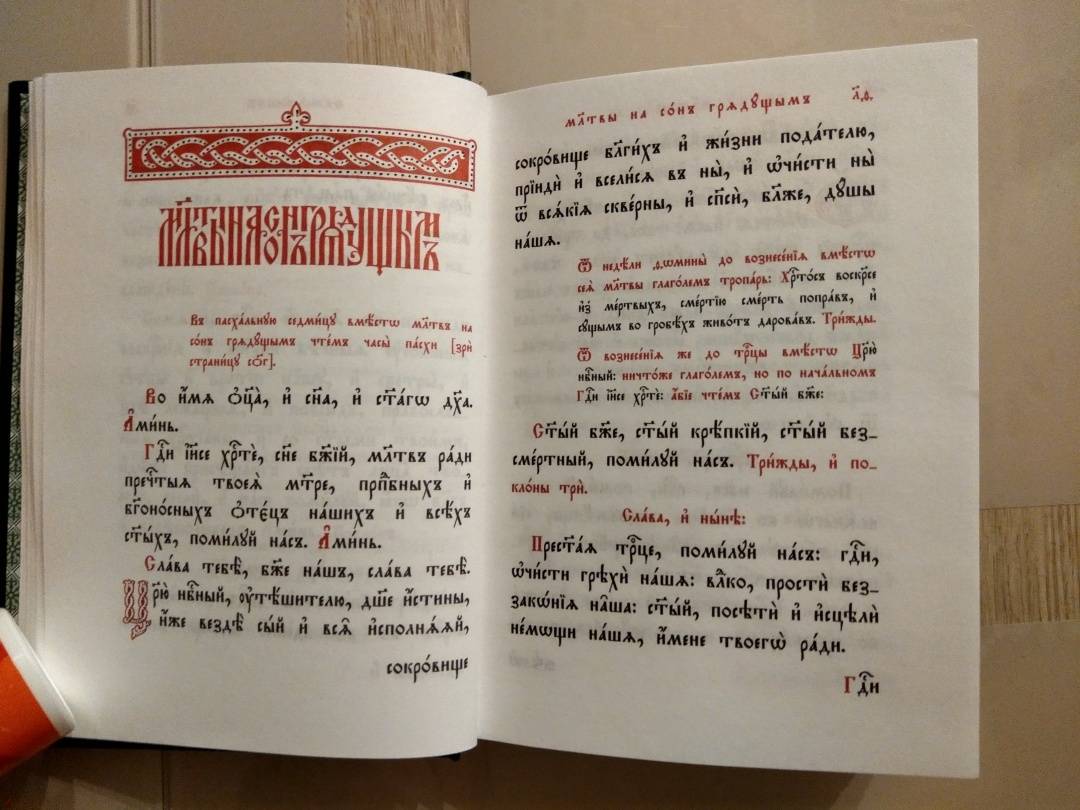 Мл҃твы на со́нъ грѧдꙋ́щымъ
Въ пасха́льнꙋю седми́цꙋ вмѣ́стѡ мл҃твъ на
со́нъ грѧдꙋ́щымъ чте́мъ часы̀ па́схи [зрѝ
страни́цꙋ со҃г].
Во и҆́мѧ ѻ҆ц҃а̀, и҆ сн҃а, и҆ ст҃а́гѡ дх҃а.
А҆ми́нь.
Гдⷭ҇и і҆и҃се хрⷭ҇тѐ, сн҃е бж҃їй, мл҃твъ ра́ди
пречⷭ҇тыѧ твоеѧ̀ мт҃ре, прпⷣбныхъ и҆
бг҃оно́сныхъ ѻ҆тє́цъ на́шихъ и҆ всѣ́хъ
ст҃ы́хъ, поми́лꙋй на́съ. А҆ми́нь.
Сла́ва тебѣ̀, бж҃е на́шъ, сла́ва тебѣ̀.
Цр҃ю̀ нбⷭ҇ный, ᲂу҆тѣ́шителю, дш҃е и҆́стины,
и҆́же вездѣ̀ сы́й и҆ всѧ̑ и҆сполнѧ́ѧй,
сокро́вище
мл҃твы на со́нъ грѧдꙋ́щымъ
л҃ѳ.
сокро́вище бл҃ги́хъ и҆ жи́зни пода́телю,
прїидѝ и҆ всели́сѧ въ ны̀, и҆ ѡ҆чи́сти ны̀
ѿ всѧ́кїѧ скве́рны, и҆ сп҃сѝ, бл҃же, дꙋ́шы
на́шѧ.
Ѿ недѣ́ли ѳѡмины̀ до вознесе́нїѧ вмѣ́стѡ
сеѧ̀ мл҃твы глаго́лемъ тропа́рь: Хрⷭ҇то́съ воскре́се
и҆з̾ ме́ртвыхъ, сме́ртїю сме́рть попра́въ, и҆
сꙋ́щымъ во гробѣ́хъ живо́тъ дарова́въ. Три́жды.
Ѿ вознесе́нїѧ же до трⷪ҇цы вмѣ́стѡ Цр҃ю̀
нбⷭ҇ный: ничто́же глаго́лемъ, но по нача́льномъ
Гдⷭ҇и і҆и҃се хрⷭ҇тѐ: а҆́бїе чте́мъ Ст҃ы́й бж҃е:
Ст҃ы́й бж҃е, ст҃ы́й крѣ́пкїй, ст҃ы́й без_
сме́ртный, поми́лꙋй на́съ. Три́жды, и҆ по_
кло́ны трѝ.
Сла́ва, и҆ ны́нѣ:
Прест҃а́ѧ трⷪ҇це, поми́лꙋй на́съ: гдⷭ҇и,
ѡ҆чи́сти грѣхѝ на́шѧ: влⷣко, простѝ без_
закѡ́нїѧ на̑ша: ст҃ы́й, посѣтѝ и҆ и҆сцѣлѝ
не́мѡщи на́шѧ, и҆́мене твоегѡ̀ ра́ди.
Гдⷭ҇и